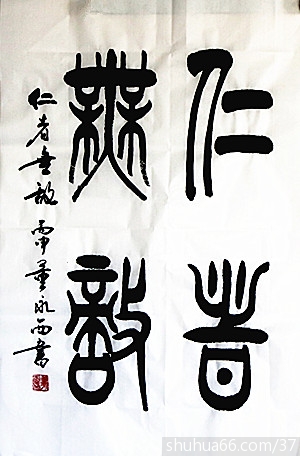 仁者
無敵
仁者無敵 丙申董永西書
shuhua66.com/37